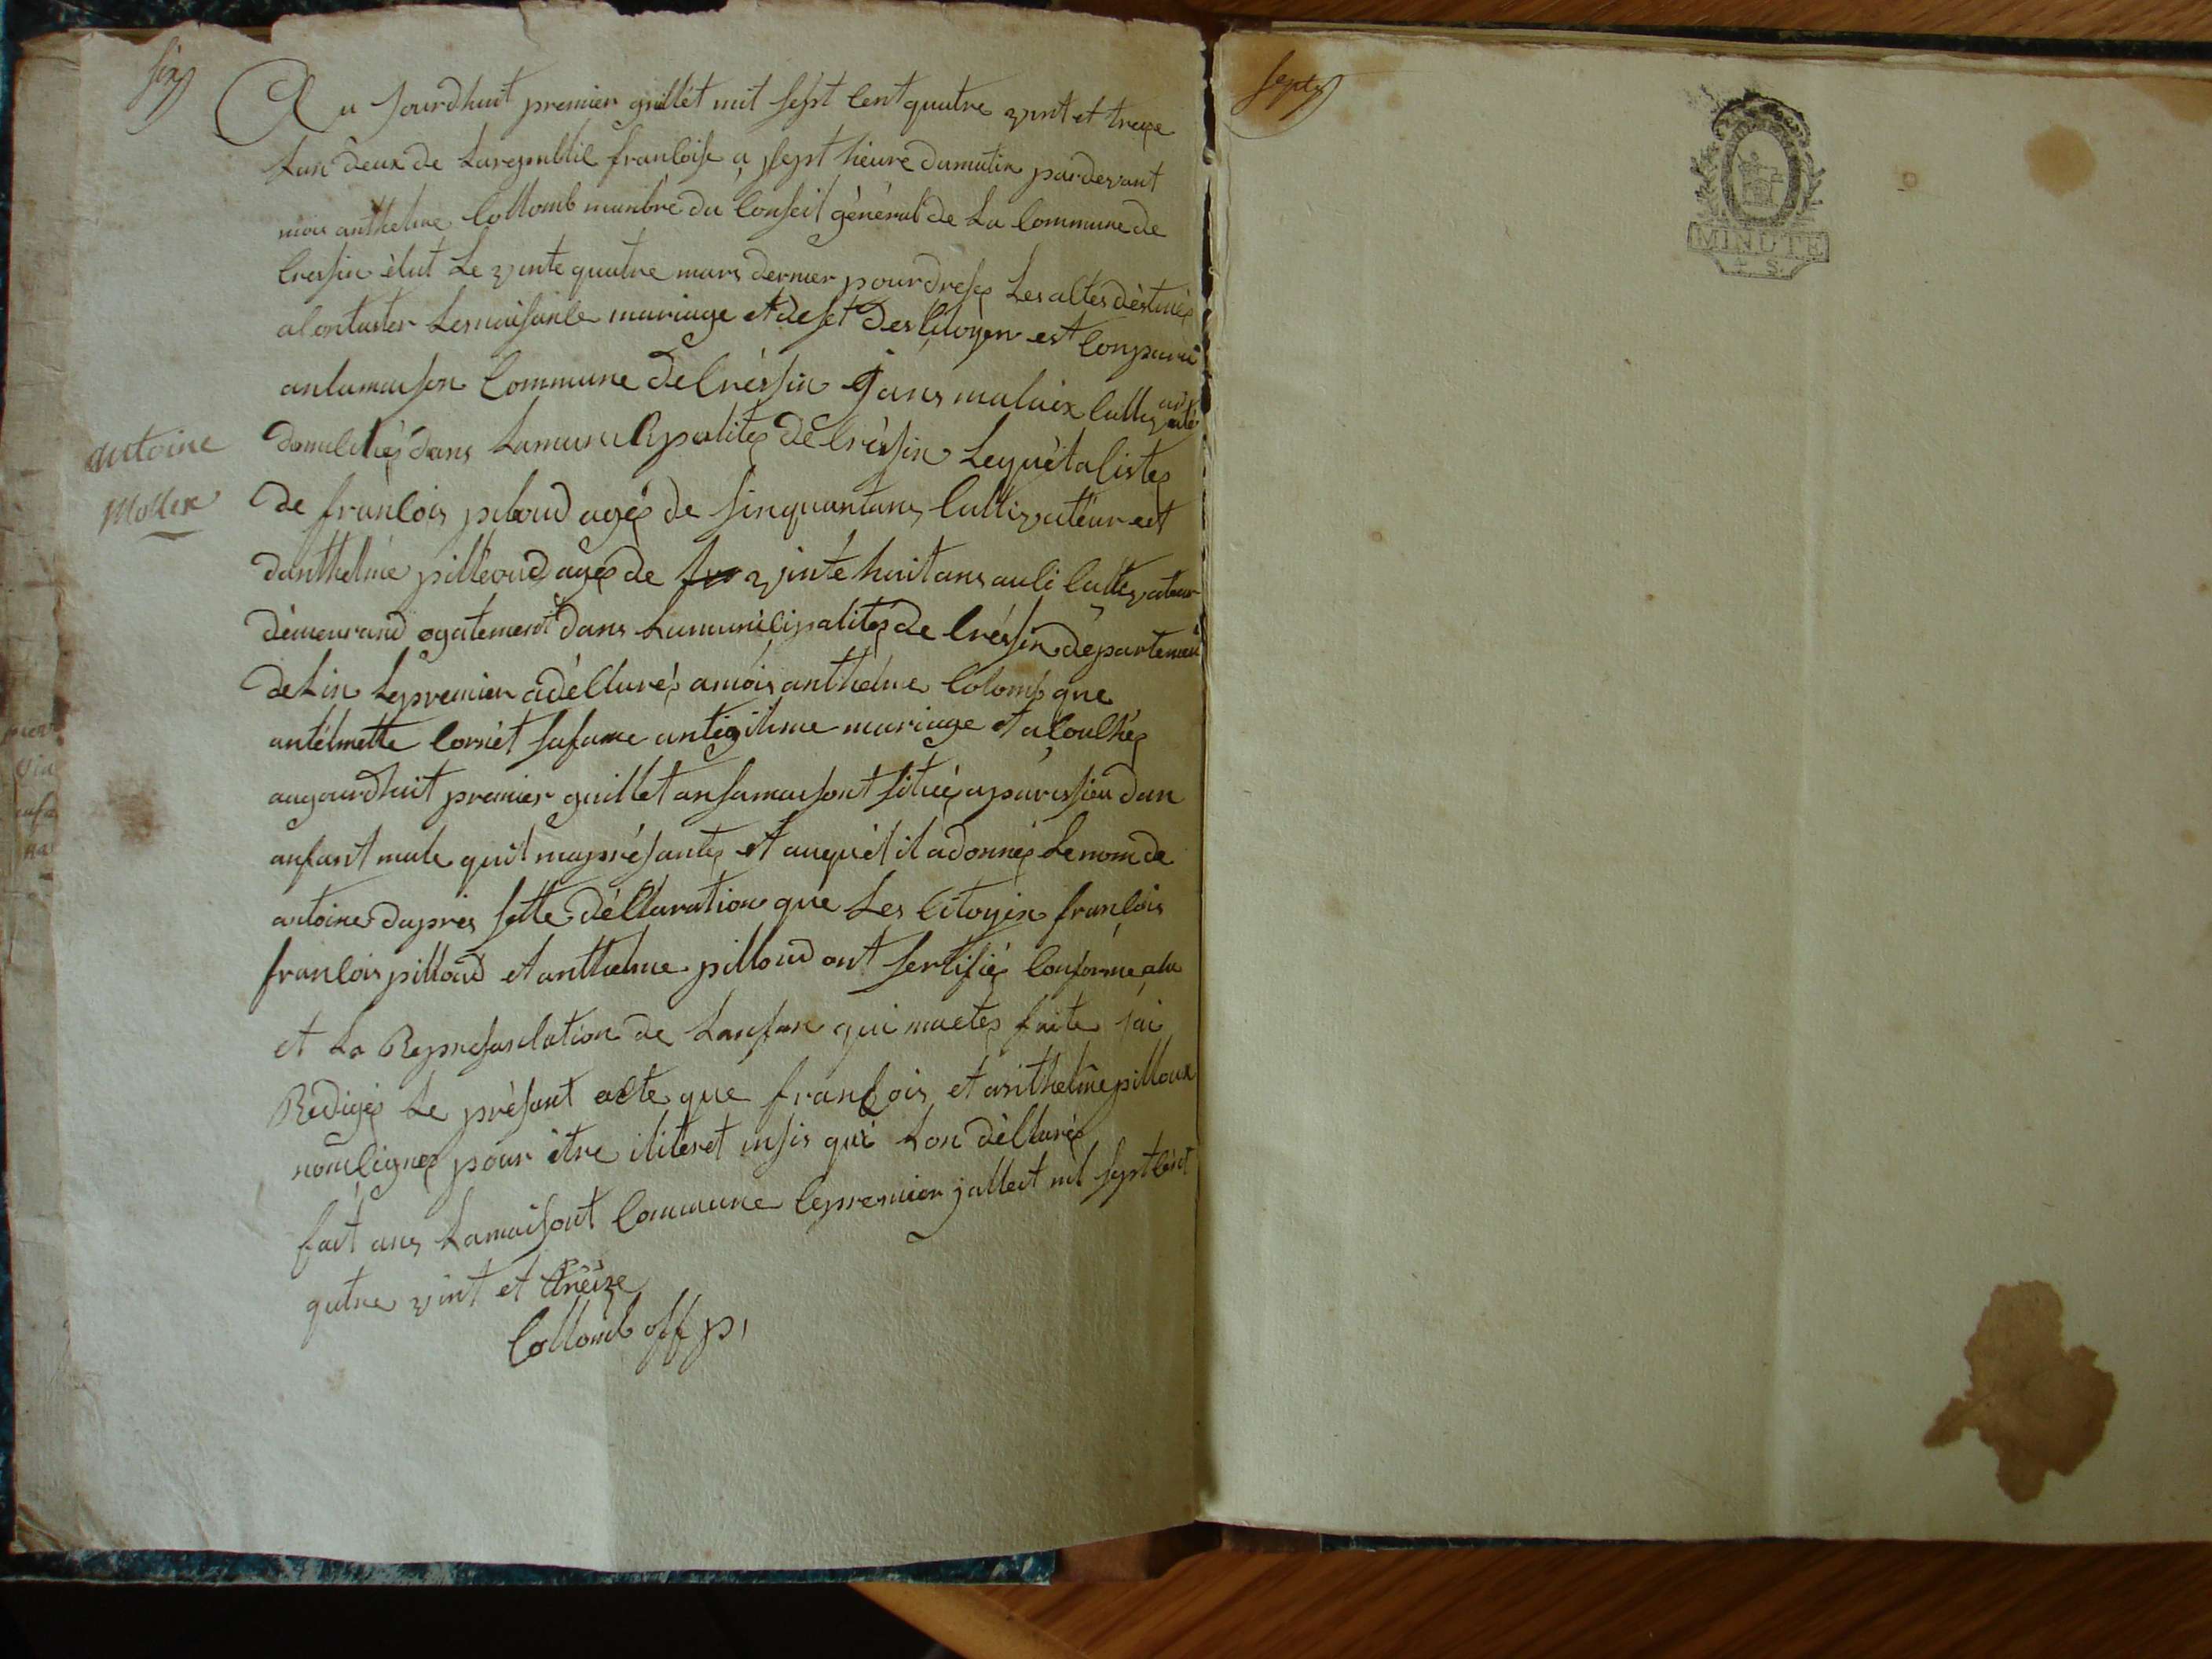 six
Au Jourdhuit premier guillét mit sept Cent quatre vint et treze
Lan deux de Larepublic francoise a sept hieure dumatin pardevant
moi anthelme Collomb manbre du Conseil général de La Commune de
Cressin élut Le vinte quatre mars dernier pour dresé Les actes déstiné
a Contater Lesnaisance mariage et deset des Citoyen est Conparu
anlamaison Commune de Créssin Jans malaix Culti
domiciliés dans Lamunicipalité de Créssin Lequét a listé
antoine
Mollex
de francois piloud agé de sinquantans Cultivateur et
danthelme pilleoud agé de vinte huit ans ausi Cultivateur
démeurand egatement dans Lamunicipalité de Créssin département
de Lin Le premier a déclaré a moi anthelme Colomb que
antelmette Cornét safame antégitime mariage et a Couché
augourdhuit premier guillet ansamaisont située aparissieu dun
anfant male quil maprésanté et auquél il adonné Le nom de
antoine dapres sette déclaration que Les Citoyen francois
francois pilloud et anthelme pilloud ont sertifié Conforme ala
et La Represantation de Lanfan qui maeté faite jai
Redigé Le présant acte que francois et anthelme pilloux
nonsigné pour étre iliteret insis qui Lon déclaré
fait ans Lamaisont Commune Le premier jullect mil sept Cent
qutre vint et treize
Collomb off p,
septs
MINUTE
4 S.